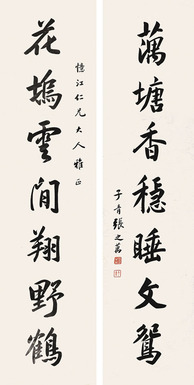 藕塘香穩睡文鴛
子青張之萬
花塢雲閒翔野鶴
憶江仁兄大人雅正